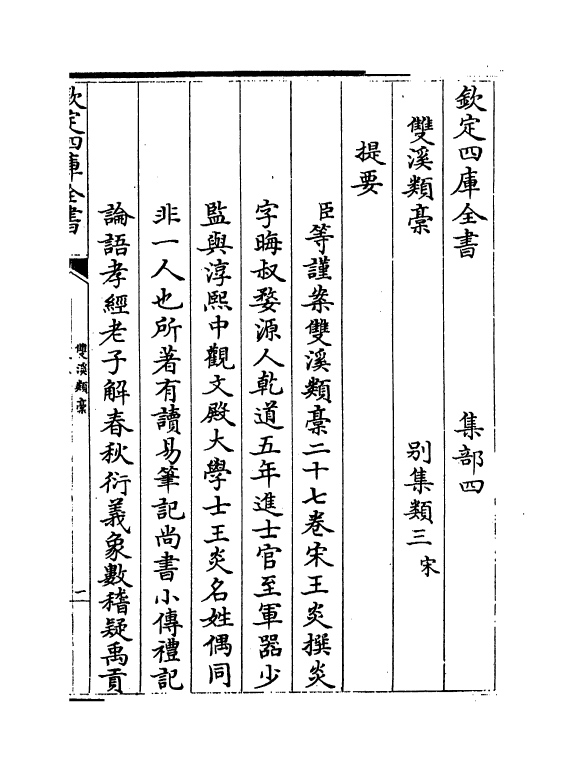 欽定四庫全書 集部四
雙溪類藁 别集類三宋
提要
臣等謹案雙溪類藁二十七卷宋王炎撰炎
字晦叔婺源人乾道五年進士官至軍器少
監與淳熙中觀文殿大學士王炎名姓偶同
非一人也所著有讀易筆記尚書小傳禮記
論語孝經老子解春秋衍義象數稽疑禹貢
欽定四庫全書
雙溪類藁